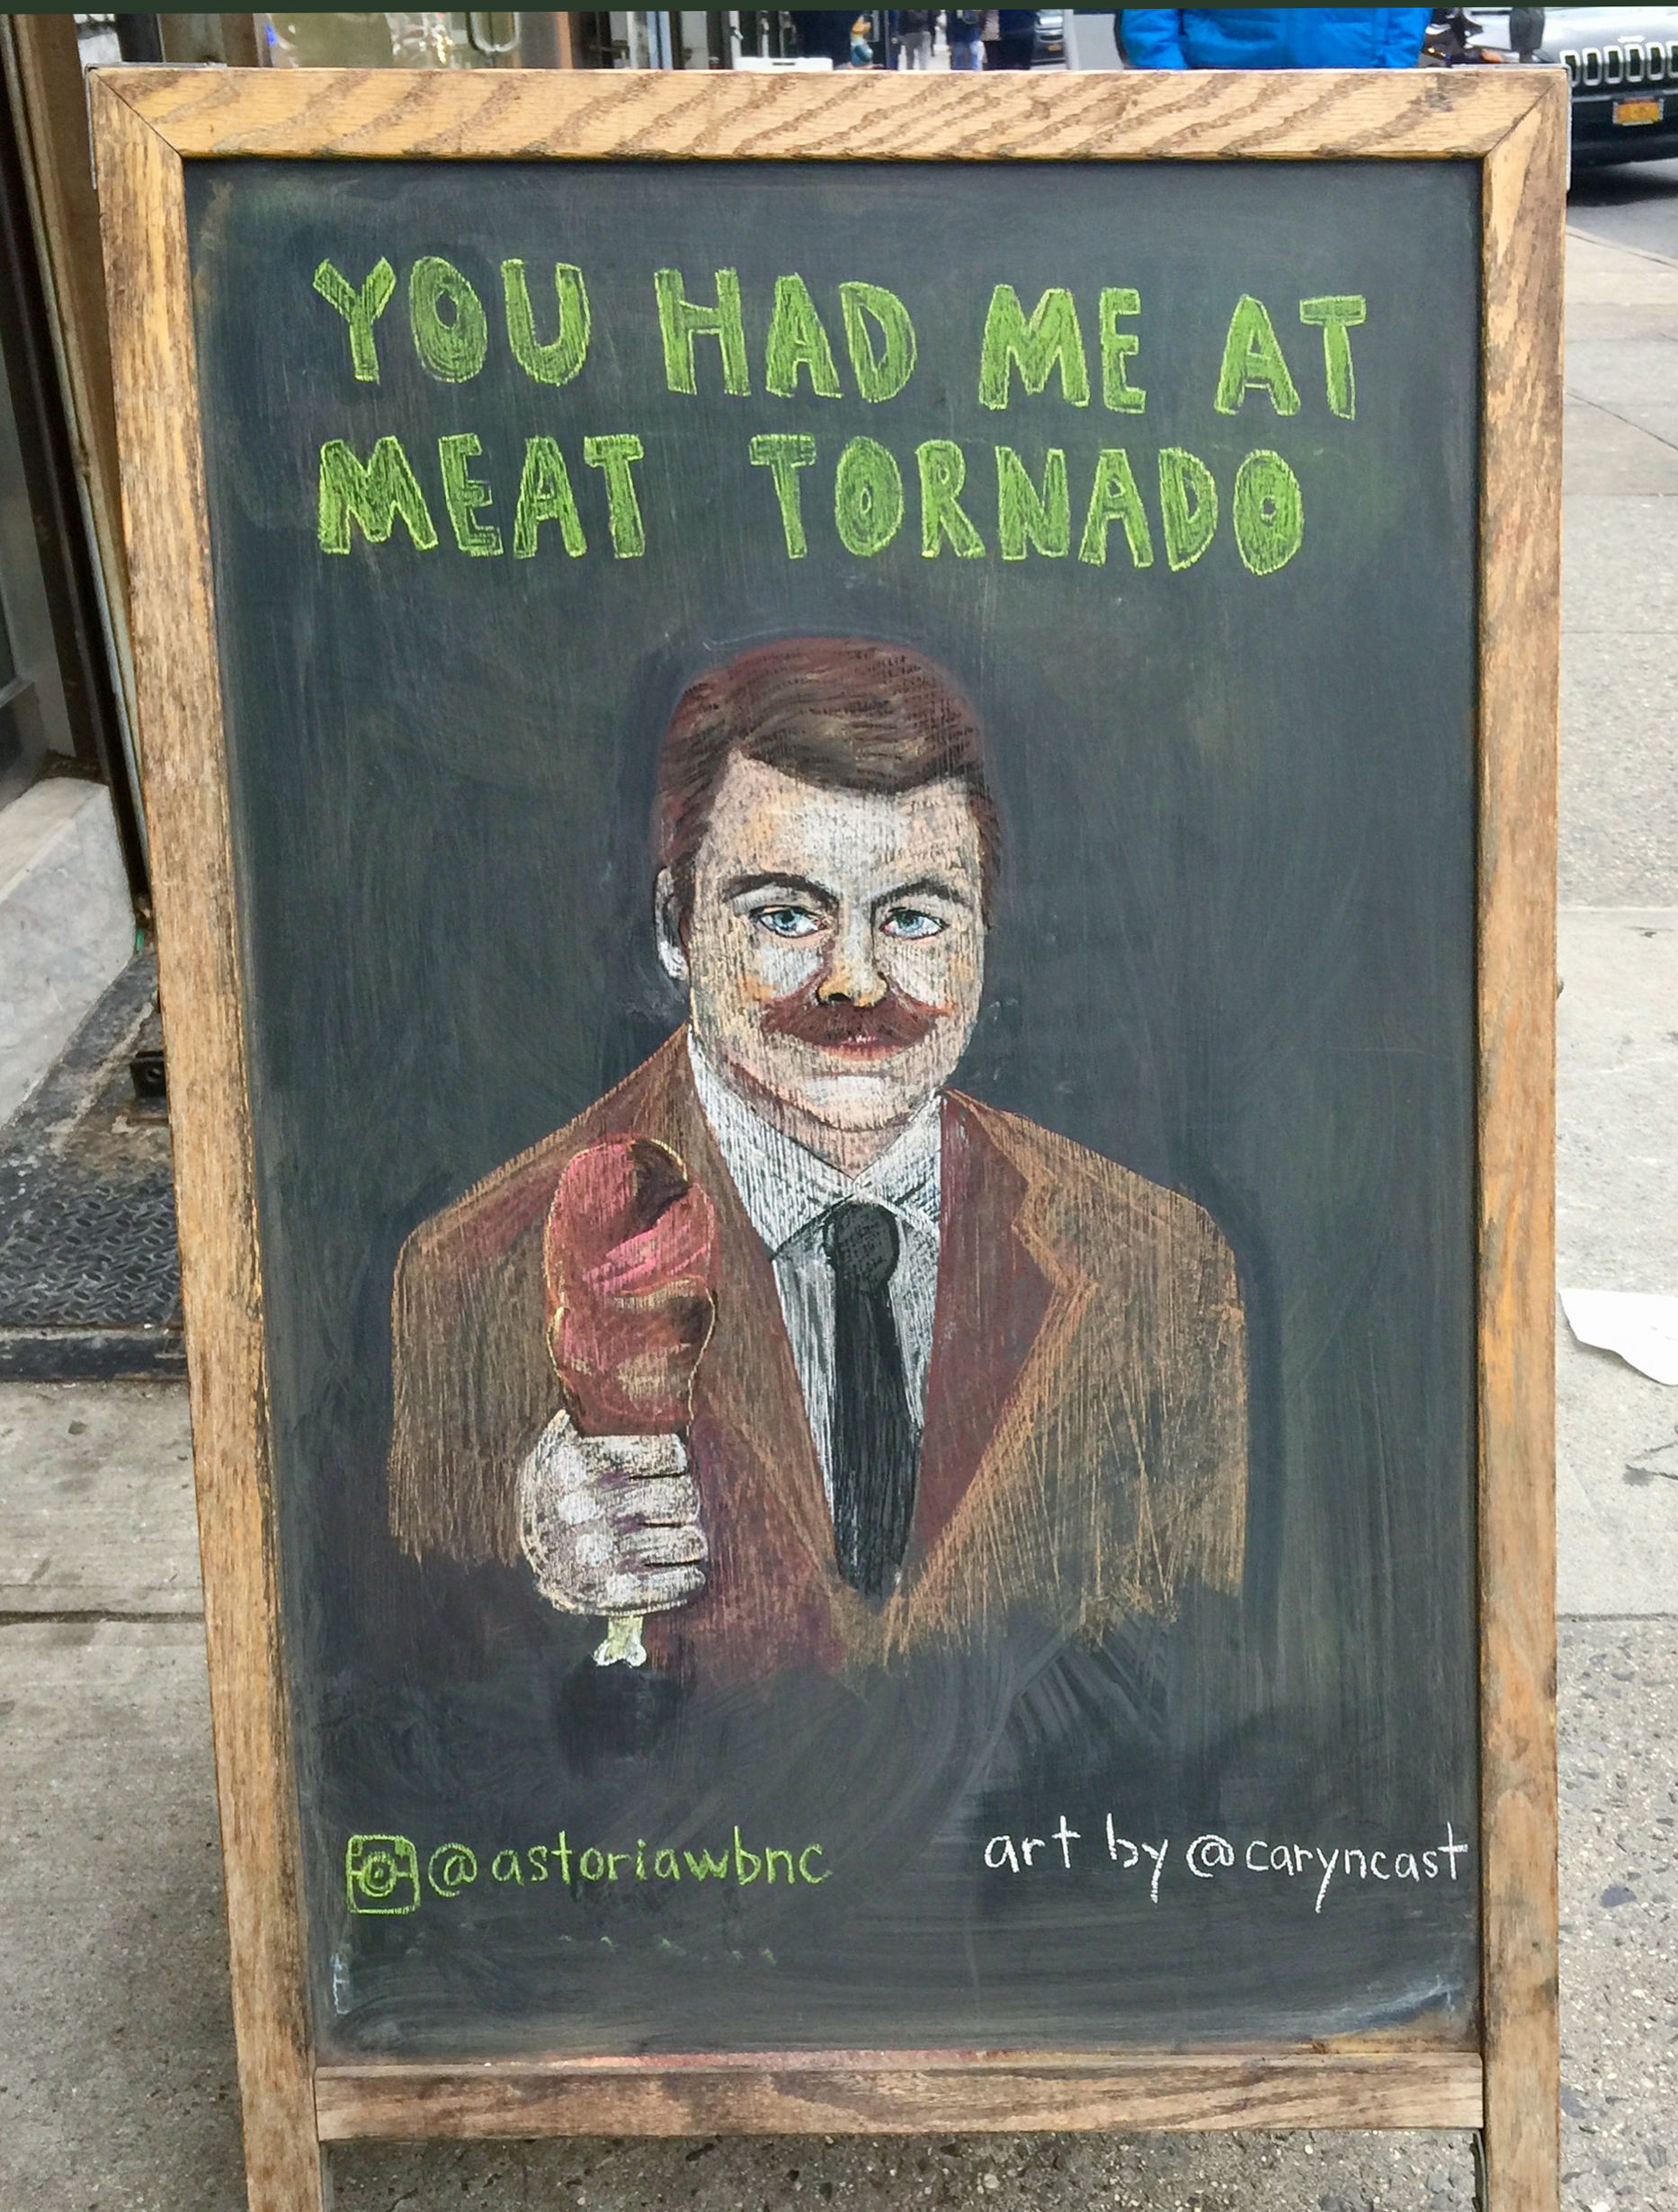 YOU HAD ME AT
MEAT TORNADO
@astoriawbnc
art by @caryncast